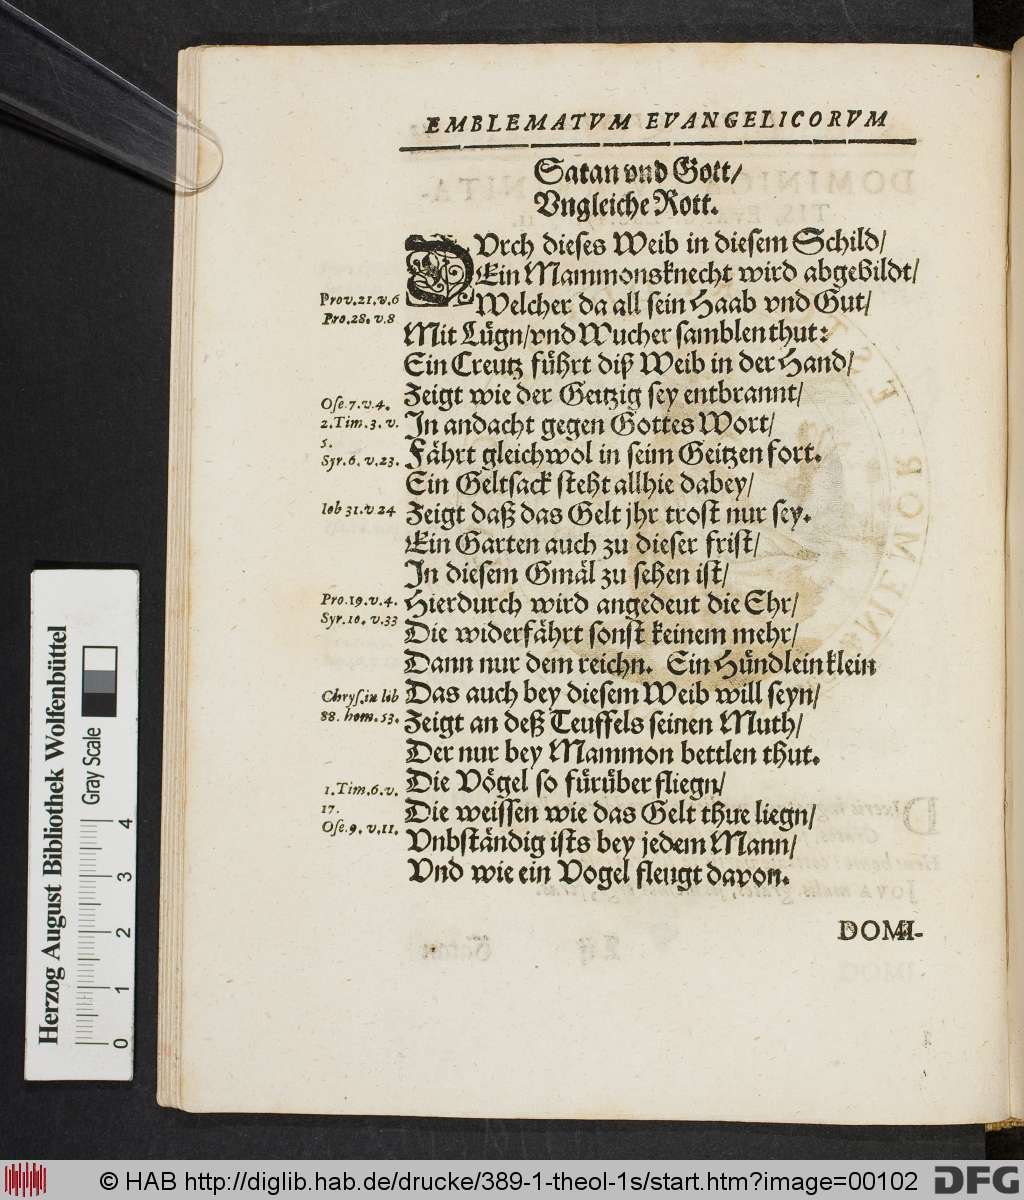 EMBLEMATVM EVANGELICORVM
Satan vnd Gott/
Vngleiche Rott.
DVrch dieses Weib in diesem Schild/
Ein Mammonsknecht wird abgebildt/
Prov. 21. v. 6
Welcher da all sein Haab vnd Gut/
Pro. 28. v. 8
Mit Lügn/vnd Wucher samblen thut:
Ein Creutz führt diß Weib in der Hand/
Zeigt wie der Geitzig sey entbrannt/
Ose. 7. v. 4.
2. Tim. 3. v.
In andacht gegen Gottes Wort/
5.
Syr. 6. v. 23.
Fährt gleichwol in seim Geitzen fort.
Ein Geltsack steht allhie dabey/
Iob 31. v 24
Zeigt daß das Gelt jhr trost nur sey.
Ein Garten auch zu dieser frist/
In diesem Gmäl zu sehen ist/
Pro. 19. v. 4.
Hierdurch wird angedeut die Ehr/
Syr. 10. v. 33
Die widerfährt sonst keinem mehr/
Dann nur dem reichn. Ein Hündlein klein
Chrys. in lib
Das auch bey diesem Weib will seyn/
88. hom. 53.
Zeigt an deß Teuffels seinen Muth/
Der nur bey Mammon bettlen thut.
1. Tim. 6. v.
Die Vögel so fürüber fliegn/
17.
Die weissen wie das Gelt thue liegn/
Ose. 9. v. 11.
Vnbständig ists bey jedem Mann/
Vnd wie ein Vogel fleugt davon.
DOMI-
Herzog August Bibliothek Wolfenbüttel
Gray Scale
0 1 2 3 4
© HAB http://diglib.hab.de/drucke/389-1-theol-1s/start.htm?image=00102
DFG